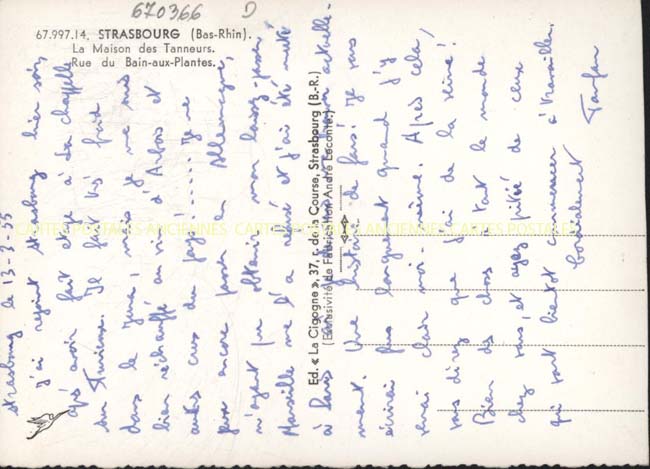 670366 D
67.997.14. STRASBOURG (Bas-Rhin).
La Maison des Tanneurs.
Rue du Bain-aux-Plantes.
Ed. « La Cigogne », 37, r. de la Course, Strasbourg (B.-R.)
(Exclusivité de Fabrication André Leconte.)
CARTES POSTALES ANCIENNES CARTES POSTALES ANCIENNES CARTES POSTALES
Strasbourg le 13-3-55
j'ai rejoint strasbourg hier soir
après avoir fait étape à La chapelle
sur Furieuse. Il fait très froid
dans le Jura, mais je me suis
bien réchauffé au vin d'Arbois et
autres crus du pays!..... Je ne
pars encore pas en Allemagne,
n'ayant pu obtenir mon laissez-passer.
Marseille me l'a refusé et j'ai été muté
à Paris
ment. Une histoire de fous! Je vous
écrirai plus longuement quand j'y
verrai clair moi-même. Après cela,
vous direz que j'ai de la veine!
Bien des choses à tout le monde
chez vous, et ayez pitié de ceux
qui vont bientôt commencer à travailler.
Cordialement